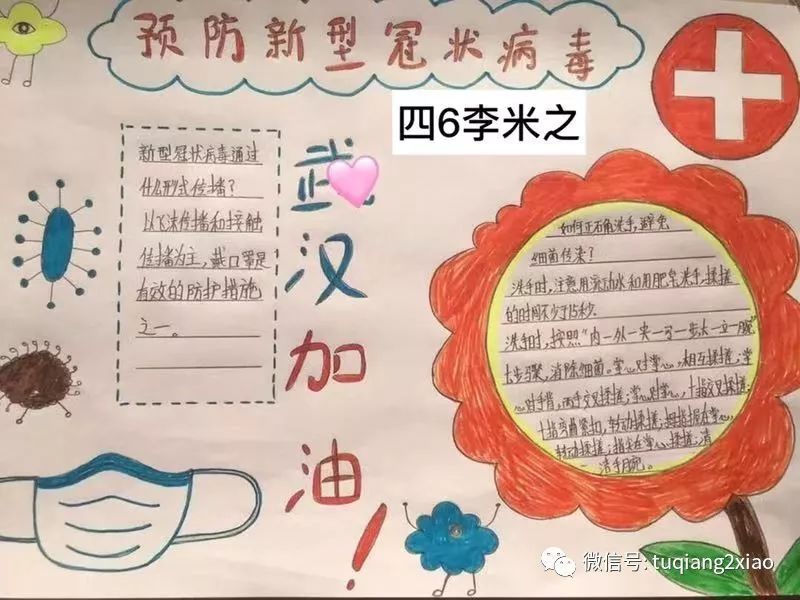 预防新型冠状病毒
四6李米之
新型冠状病毒通过
什么形式传播?
以飞沫传播和接触
传播为主,戴口罩是
有效的防护措施
之一。
武汉加油!
如何正确洗手,避免
细菌传染?
洗手时,注意用流动水和用肥皂洗手,揉搓
的时间不少于15秒.
洗手时,按照“内一外一夹一弓一大一立一腕”
七步骤,消除细菌。掌心对掌心,相互揉搓;掌
心对手背,两手交叉揉搓;掌心对掌心,十指交叉揉搓;
十指弯曲紧扣,转动揉搓;拇指握在掌心,
转动揉搓;指尖在掌心揉搓;清
洁手腕。
微信号: tuqiang2xiao